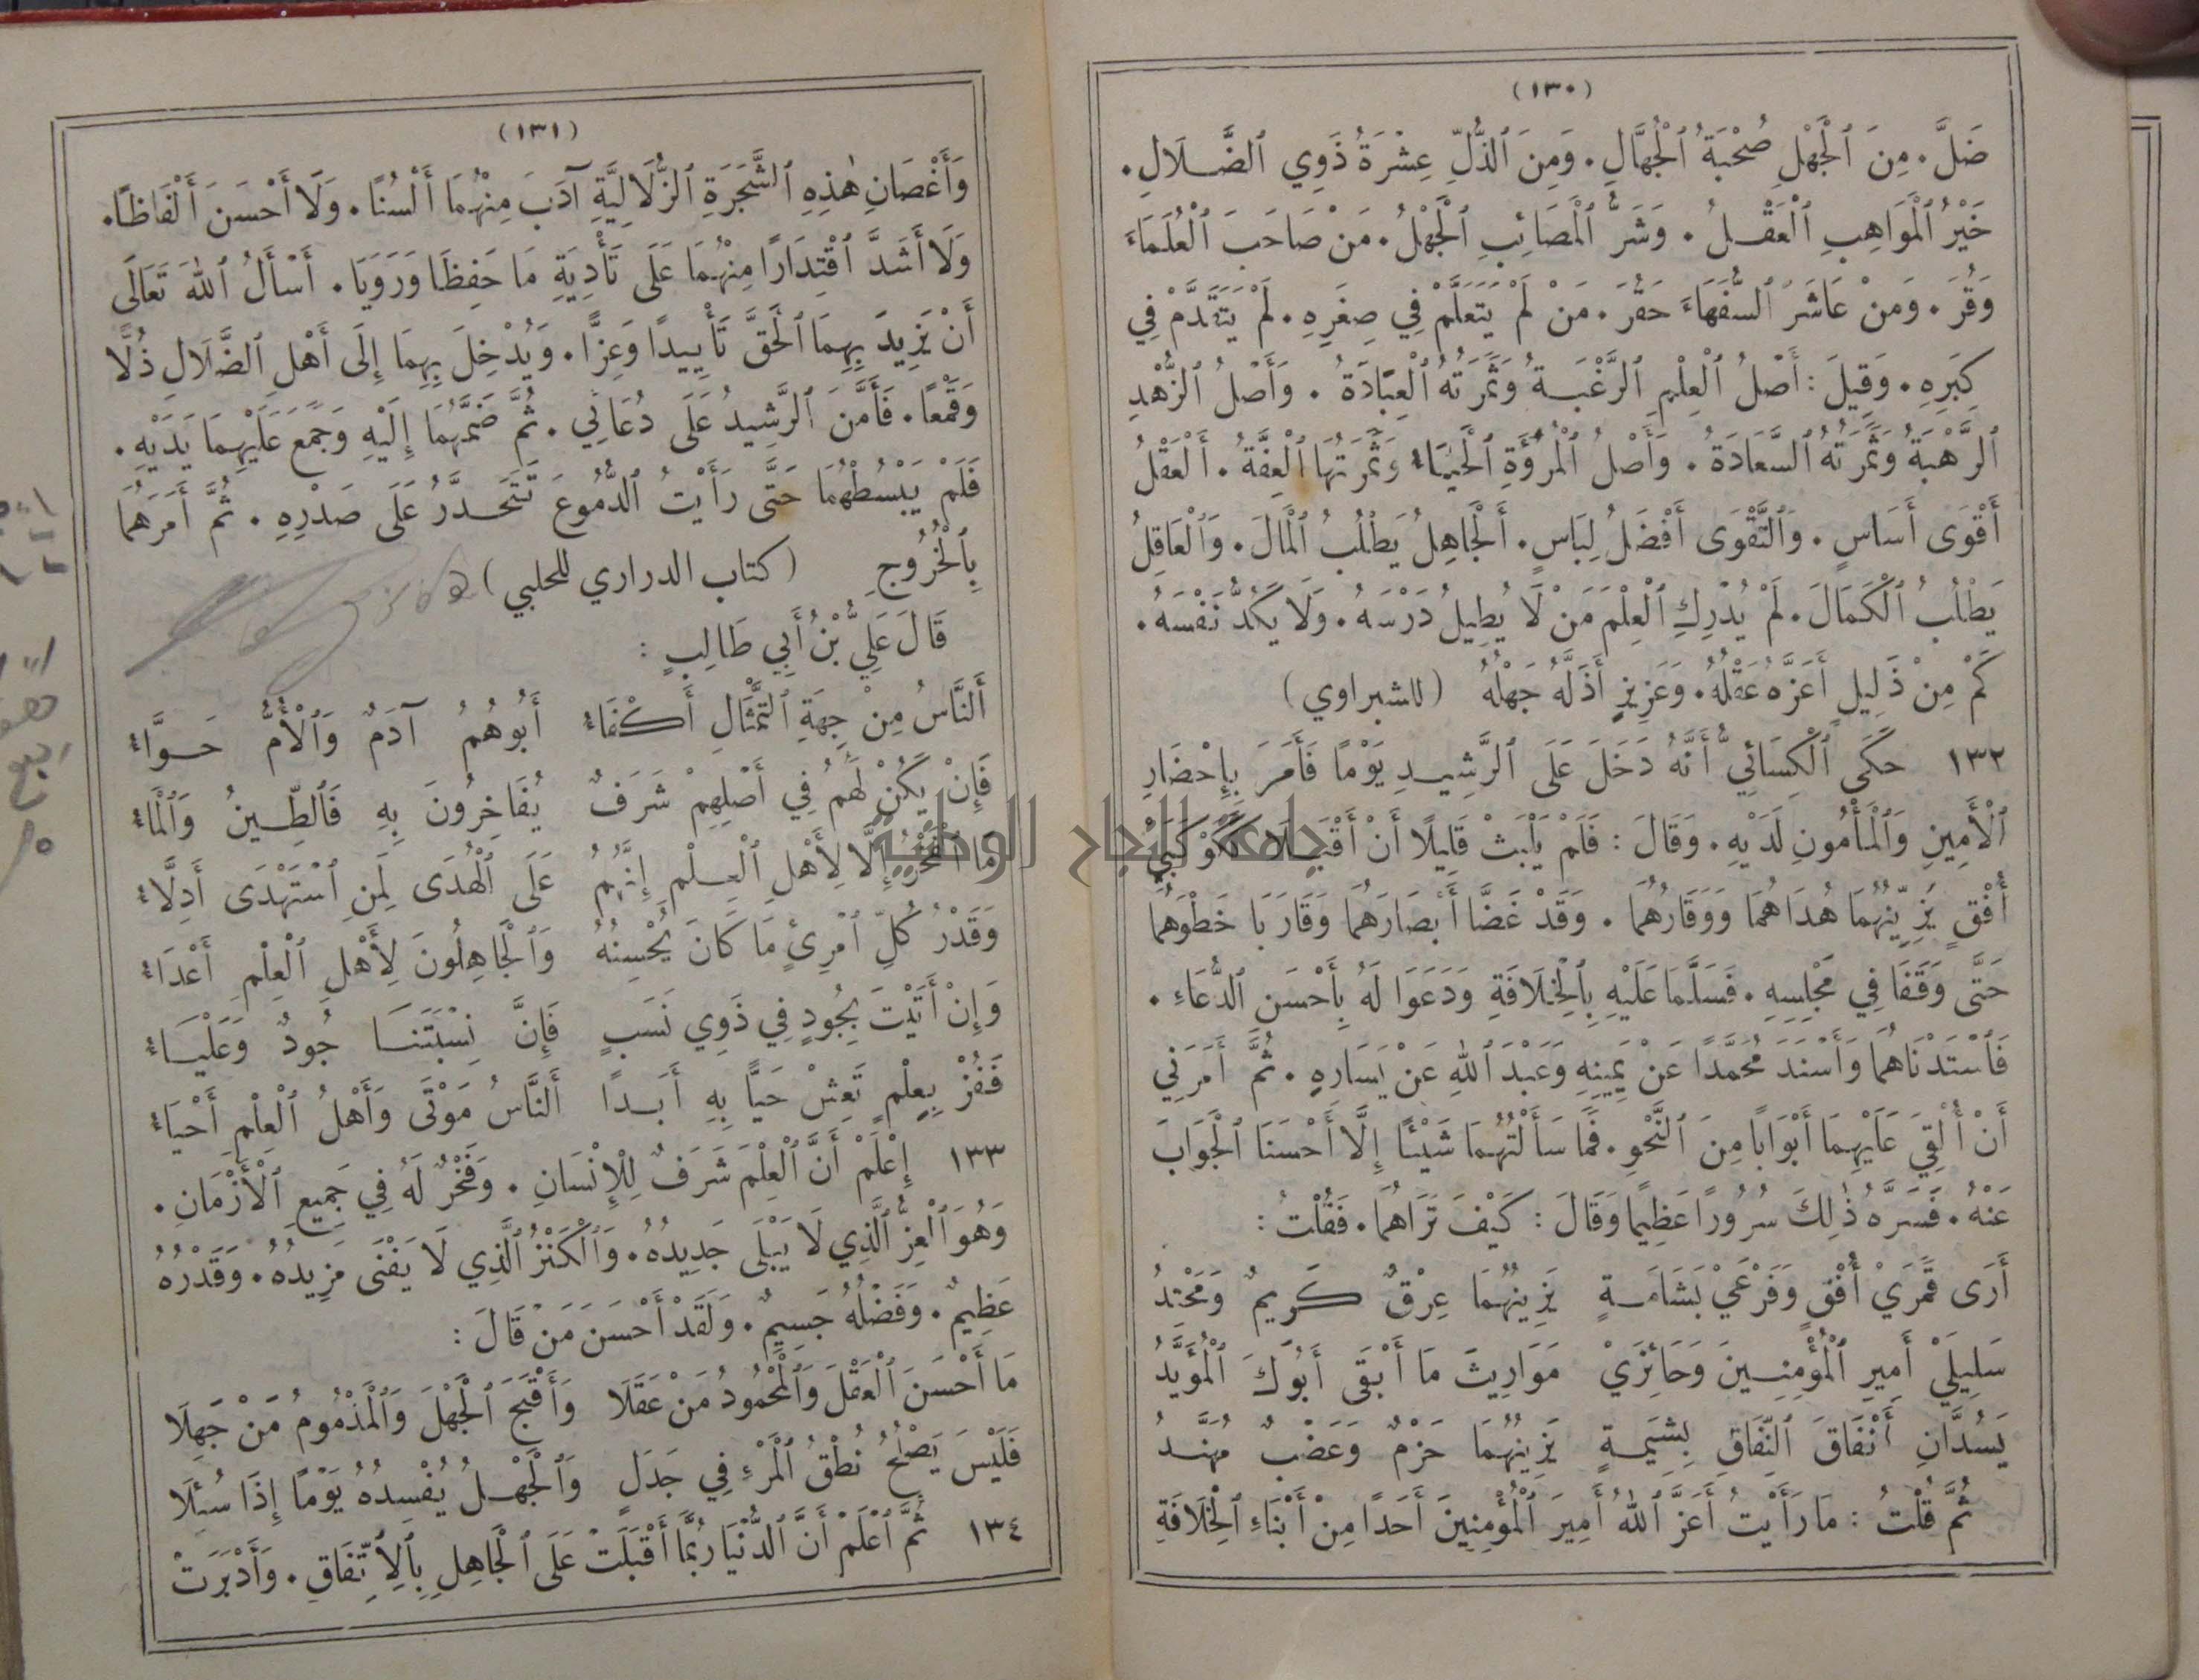 (١٣٠)
ضَلَّ. مِنَ ٱلْجَهْلِ صُحْبَةُ ٱلْجُهَّالِ. وَمِنَ ٱلذُّلِّ عِشْرَةُ ذَوِي ٱلضَّلَالِ.
خَيْرُ ٱلْمَوَاهِبِ ٱلْعَقْلُ. وَشَرُّ ٱلْمَصَائِبِ ٱلْجَهْلُ. مَنْ صَاحَبَ ٱلْعُلَمَاءَ
وَقُرَ. وَمَنْ عَاشَرَ ٱلسُّفَهَاءَ حَقُرَ. مَنْ لَمْ يَتَعَلَّمْ فِي صِغَرِهِ. لَمْ يَتَقَدَّمْ فِي
كِبَرِهِ. وَقِيلَ: أَصْلُ ٱلْعِلْمِ ٱلرَّغْبَةُ وَثَمَرَتُهُ ٱلْعِبَادَةُ. وَأَصْلُ ٱلزُّهْدِ
ٱلرَّهْبَةُ وَثَمَرَتُهُ ٱلسَّعَادَةُ. وَأَصْلُ ٱلْمُرُوَّةِ ٱلْحَيَاءُ وَثَمَرَتُهَا ٱلْعِفَّةُ. أَلْعَقْلُ
أَقْوَى أَسَاسٍ. وَٱلتَّقْوَى أَفْضَلُ لِبَاسٍ. أَلْجَاهِلُ يَطْلُبُ ٱلْمَالَ. وَٱلْعَاقِلُ
يَطْلُبُ ٱلْكَمَالَ. لَمْ يُدْرِكِ ٱلْعِلْمَ مَنْ لَا يُطِيلُ دَرْسَهُ. وَلَا يَكُدُّ نَفْسَهُ.
كَمْ مِنْ ذَلِيلٍ أَعَزَّهُ عَقْلُهُ. وَعَزِيزٍ أَذَلَّهُ جَهْلُهُ (للشبراوي)
١٣٢ حَكَى ٱلْكِسَائِيُّ أَنَّهُ دَخَلَ عَلَى ٱلرَّشِيدِ يَوْمًا فَأَمَرَ بِإِحْضَارِ
ٱلْأَمِينِ وَٱلْمَأْمُونِ لَدَيْهِ. وَقَالَ: فَلَمْ يَلْبَثْ قَلِيلًا أَنْ أَقْبَلَا كَكَوْكَبَيْ
أُفْقٍ يَزِينُهُمَا هُدَاهُمَا وَوَقَارُهُمَا. وَقَدْ غَضَّا أَبْصَارَهُمَا وَقَارَبَا خَطْوَهُمَا
حَتَّى وَقَفَا فِي مَجْلِسِهِ. فَسَلَّمَا عَلَيْهِ بِٱلْخِلَافَةِ وَدَعَوَا لَهُ بِأَحْسَنِ ٱلدُّعَاءِ.
فَٱسْتَدْنَاهُمَا وَأَسْنَدَ مُحَمَّدًا عَنْ يَمِينِهِ وَعَبْدَ ٱللهِ عَنْ يَسَارِهِ. ثُمَّ أَمَرَنِي
أَنْ أُلْقِيَ عَلَيْهِمَا أَبْوَابًا مِنَ ٱلنَّحْوِ. فَمَا سَأَلْتُهُمَا شَيْئًا إِلَّا أَحْسَنَا ٱلْجَوَابَ
عَنْهُ. فَسَرَّهُ ذٰلِكَ سُرُورًا عَظِيمًا وَقَالَ: كَيْفَ تَرَاهُمَا. فَقُلْتُ:
أَرَى قَمَرَيْ أُفْقٍ وَفَرْعَيْ بَشَامَةٍ يَزِينُهُمَا عِرْقٌ كَرِيمٌ وَمَحْتِدُ
سَلِيلَيْ أَمِيرِ ٱلْمُؤْمِنِينَ وَحَائِزَيْ مَوَارِيثَ مَا أَبْقَى أَبُوكَ ٱلْمُؤَيَّدُ
يَسُدَّانِ أَنْفَاقَ ٱلنِّفَاقِ بِشِيمَةٍ يَزِينُهُمَا حَزْمٌ وَعَضْبٌ مُهَنَّدُ
ثُمَّ قُلْتُ: مَا رَأَيْتُ أَعَزَّ ٱللهُ أَمِيرَ ٱلْمُؤْمِنِينَ أَحَدًا مِنْ أَبْنَاءِ ٱلْخِلَافَةِ
(١٣١)
وَأَغْصَانِ هٰذِهِ ٱلشَّجَرَةِ ٱلزُّلَالِيَّةِ آدَبَ مِنْهُمَا أَلْسُنًا. وَلَا أَحْسَنَ أَلْفَاظًا.
وَلَا أَشَدَّ ٱقْتِدَارًا مِنْهُمَا عَلَى تَأْدِيَةِ مَا حَفِظَا وَرَوَيَا. أَسْأَلُ ٱللهَ تَعَالَى
أَنْ يَزِيدَ بِهِمَا ٱلْحَقَّ تَأْيِيدًا وَعِزًّا. وَيُدْخِلَ بِهِمَا إِلَى أَهْلِ ٱلضَّلَالِ ذُلًّا
وَقَمْعًا. فَأَمَّنَ ٱلرَّشِيدُ عَلَى دُعَائِي. ثُمَّ ضَمَّهُمَا إِلَيْهِ وَجَمَعَ عَلَيْهِمَا يَدَيْهِ.
فَلَمْ يَبْسُطْهُمَا حَتَّى رَأَيْتُ ٱلدُّمُوعَ تَتَحَدَّرُ عَلَى صَدْرِهِ. ثُمَّ أَمَرَهُمَا
بِٱلْخُرُوجِ (كتاب الدراري للحلبي)
قَالَ عَلِيُّ بْنُ أَبِي طَالِبٍ:
أَلنَّاسُ مِنْ جِهَةِ ٱلتِّمْثَالِ أَكْفَاءُ أَبُوهُمُ آدَمُ وَٱلْأُمُّ حَوَّاءُ
فَإِنْ يَكُنْ لَهُمُ فِي أَصْلِهِمْ شَرَفٌ يُفَاخِرُونَ بِهِ فَٱلطِّينُ وَٱلْمَاءُ
مَا ٱلْفَخْرُ إِلَّا لِأَهْلِ ٱلْعِلْمِ إِنَّهُمُ عَلَى ٱلْهُدَى لِمَنِ ٱسْتَهْدَى أَدِلَّاءُ
وَقَدْرُ كُلِّ ٱمْرِئٍ مَا كَانَ يُحْسِنُهُ وَٱلْجَاهِلُونَ لِأَهْلِ ٱلْعِلْمِ أَعْدَاءُ
وَإِنْ أَتَيْتَ بِجُودٍ فِي ذَوِي نَسَبٍ فَإِنَّ نِسْبَتَنَا جُودٌ وَعَلْيَاءُ
فَفُزْ بِعِلْمٍ تَعِشْ حَيًّا بِهِ أَبَدًا أَلنَّاسُ مَوْتَى وَأَهْلُ ٱلْعِلْمِ أَحْيَاءُ
١٣٣ إِعْلَمْ أَنَّ ٱلْعِلْمَ شَرَفٌ لِلْإِنْسَانِ. وَفَخْرٌ لَهُ فِي جَمِيعِ ٱلْأَزْمَانِ.
وَهُوَ ٱلْعِزُّ ٱلَّذِي لَا يَبْلَى جَدِيدُهُ. وَٱلْكَنْزُ ٱلَّذِي لَا يَفْنَى مَزِيدُهُ. وَقَدْرُهُ
عَظِيمٌ. وَفَضْلُهُ جَسِيمٌ. وَلَقَدْ أَحْسَنَ مَنْ قَالَ:
مَا أَحْسَنَ ٱلْعَقْلَ وَٱلْمَحْمُودُ مَنْ عَقَلَا وَأَقْبَحَ ٱلْجَهْلَ وَٱلْمَذْمُومُ مَنْ جَهِلَا
فَلَيْسَ يَصْلُحُ نُطْقُ ٱلْمَرْءِ فِي جَدَلٍ وَٱلْجَهْلُ يُفْسِدُهُ يَوْمًا إِذَا سُئِلَا
١٣٤ ثُمَّ ٱعْلَمْ أَنَّ ٱلدُّنْيَا رُبَّمَا أَقْبَلَتْ عَلَى ٱلْجَاهِلِ بِٱلِٱتِّفَاقِ. وَأَدْبَرَتْ
جامعة النجاح الوطنية